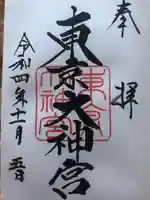 奉拝
東京大神宮
東京大神宮
令和四年十二月五日